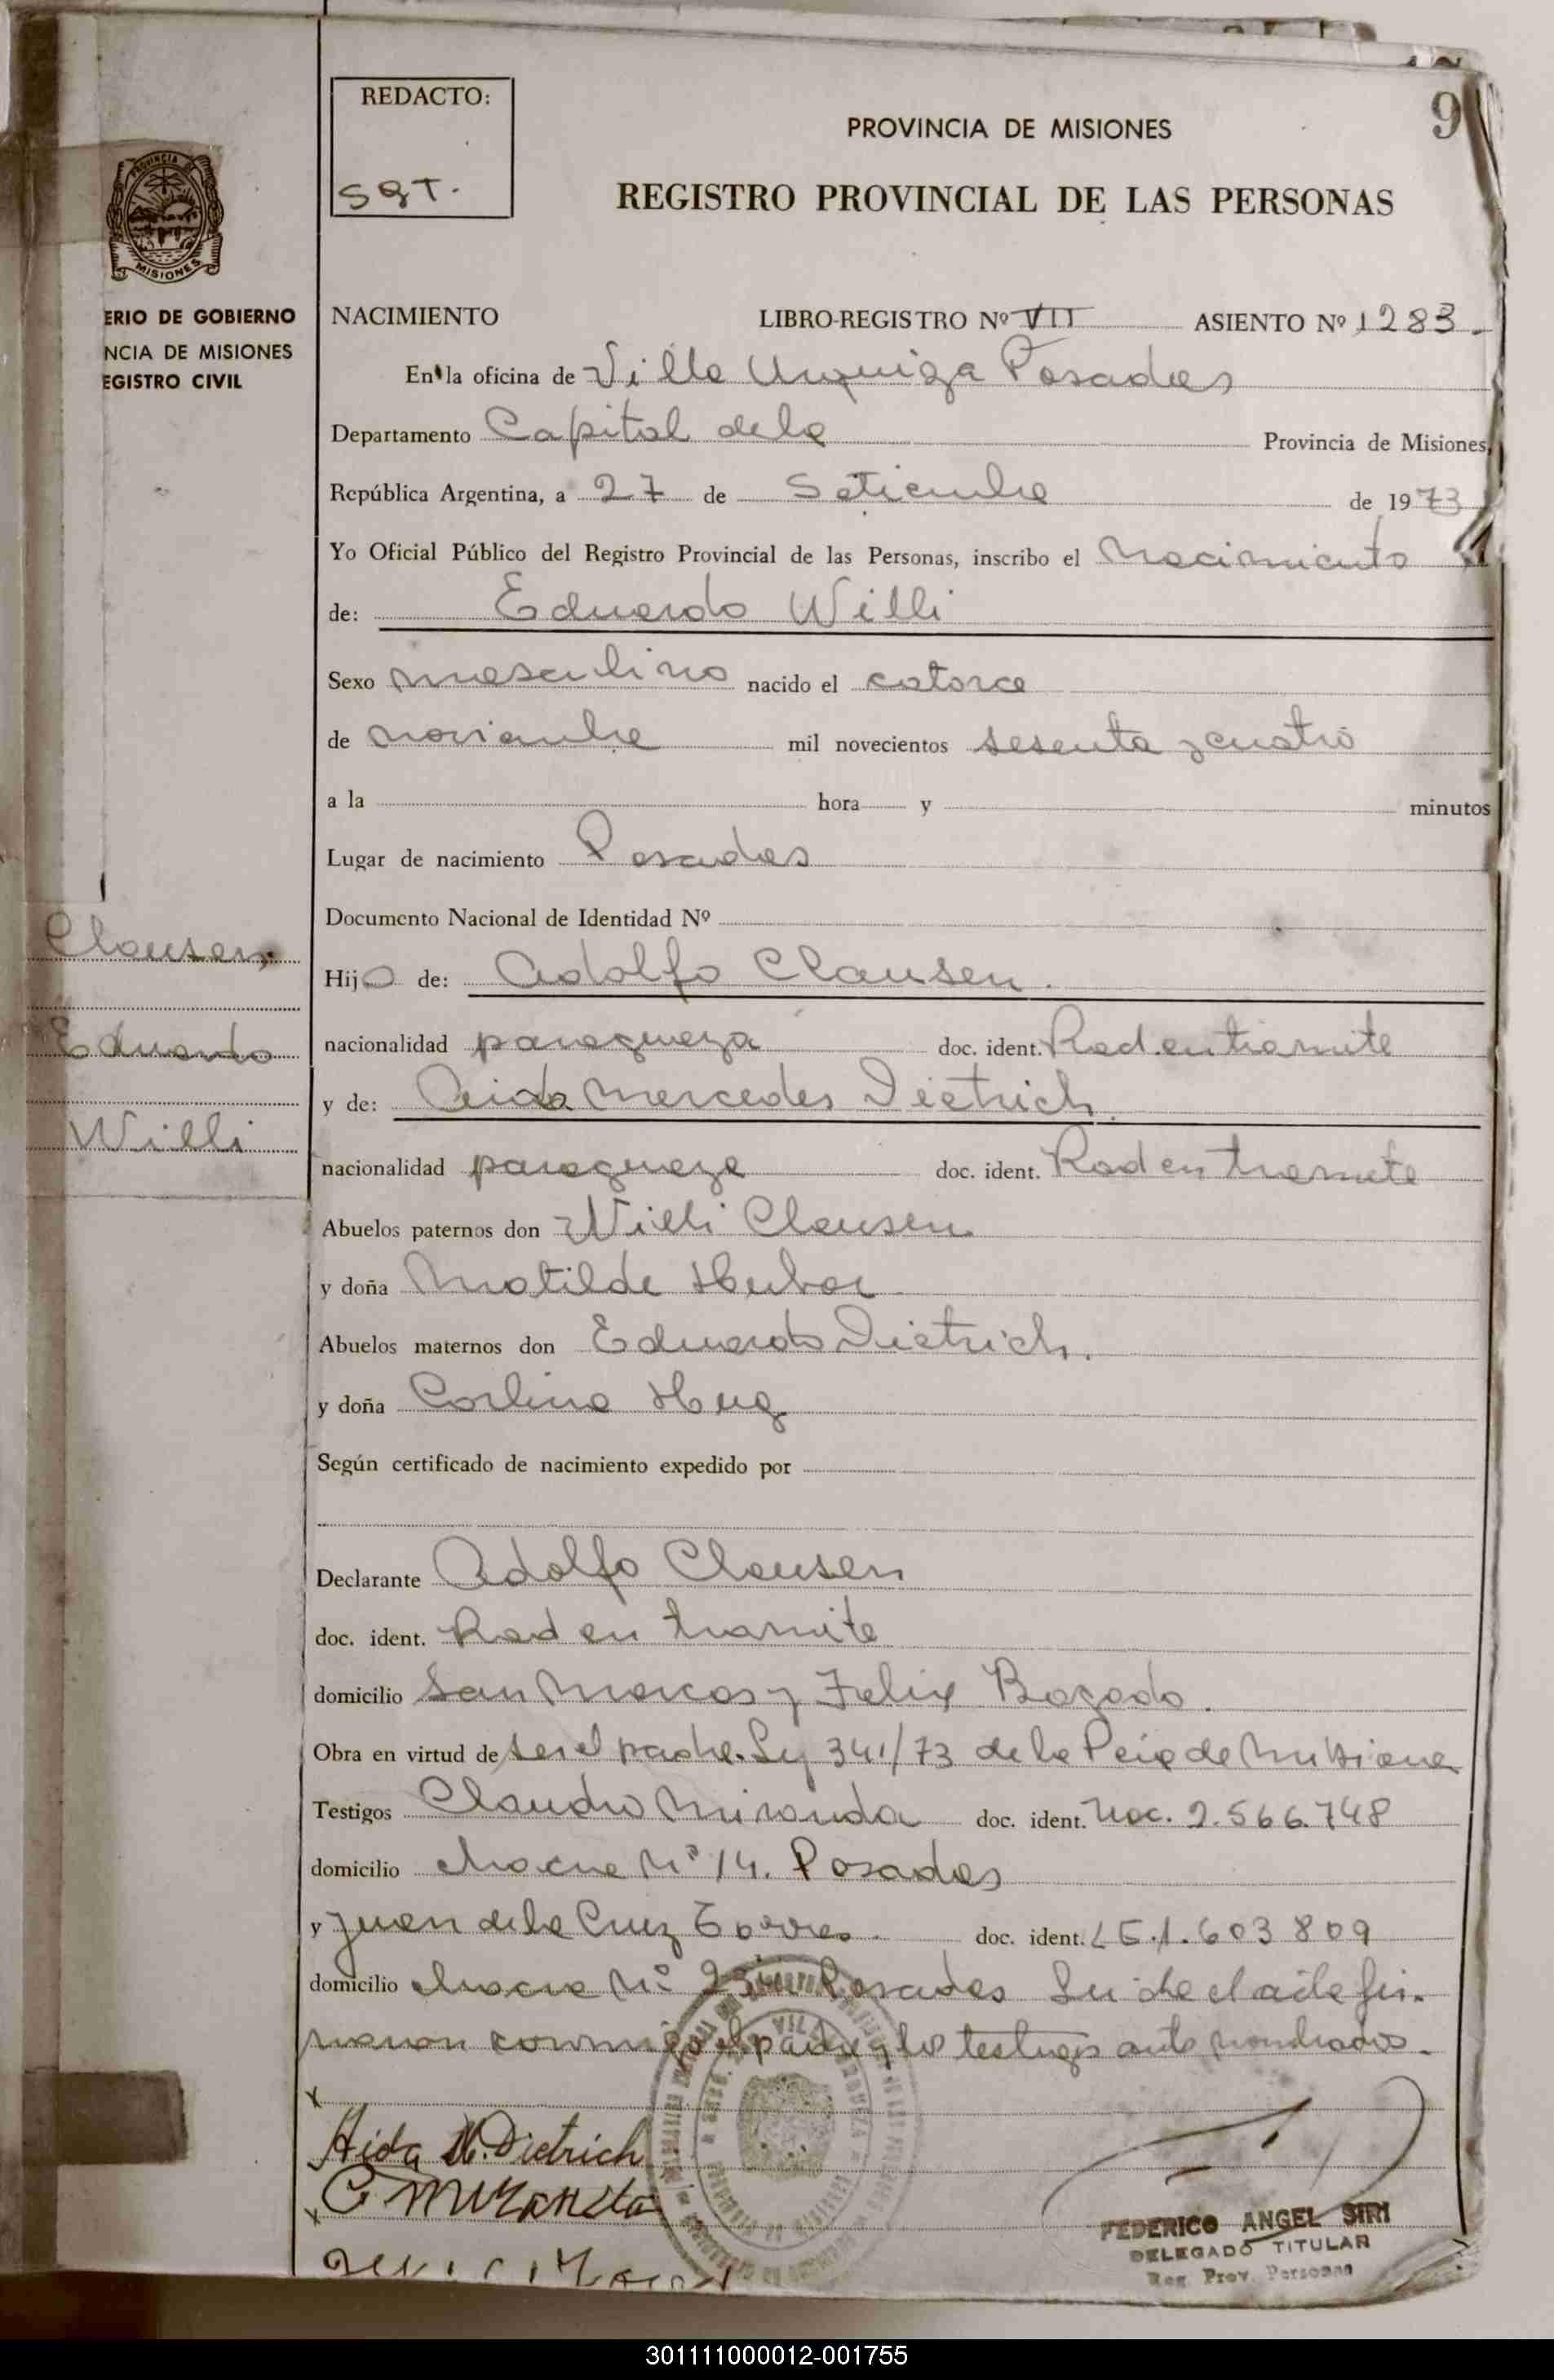 REDACTO:
SGT.
9
PROVINCIA DE MISIONES
REGISTRO PROVINCIAL DE LAS PERSONAS
PROVINCIA DE
MISIONES
ERIO DE GOBIERNO
NCIA DE MISIONES
EGISTRO CIVIL
NACIMIENTO LIBRO-REGISTRO Nº VII ASIENTO Nº 1283.
En la oficina de Villa Urquiza Posadas
Departamento Capital de la Provincia de Misiones,
República Argentina, a 27 de Setiembre de 1973
Yo Oficial Público del Registro Provincial de las Personas, inscribo el Nacimiento
de: Eduardo Willi
Sexo masculino nacido el catorce
de noviembre mil novecientos sesenta y cuatro
a la hora y minutos
Lugar de nacimiento Posadas
Documento Nacional de Identidad Nº
Clausen
Hijo de: Adolfo Clausen.
Eduardo
nacionalidad paraguaya doc. ident. Rad. en tramite
y de: Aida Mercedes Dietrich.
Willi
nacionalidad paraguaya doc. ident. Rad en tramite
Abuelos paternos don Willi Clausen
y doña Matilde Huber
Abuelos maternos don Eduardo Dietrich.
y doña Carlina Hug
Según certificado de nacimiento expedido por
Declarante Adolfo Clausen
doc. ident. Rad en tramite
domicilio San Marcos y Felix Bogado.
Obra en virtud de ser el padre. Ley 341/73 de la Pcia de Misiones
Testigos Claudio Miranda doc. ident. 2.566.748
domicilio chacra Nº 14. Posadas
y Juan de la Cruz Torres. doc. ident. LE.1.603809
domicilio chacra Nº Posadas
conmigo el padre y los testigos ante nombrados.
Aida M. Dietrich
C Miranda
FEDERICO ANGEL SIRI
DELEGADO TITULAR
Reg. Prov. Personas
301111000012-001755